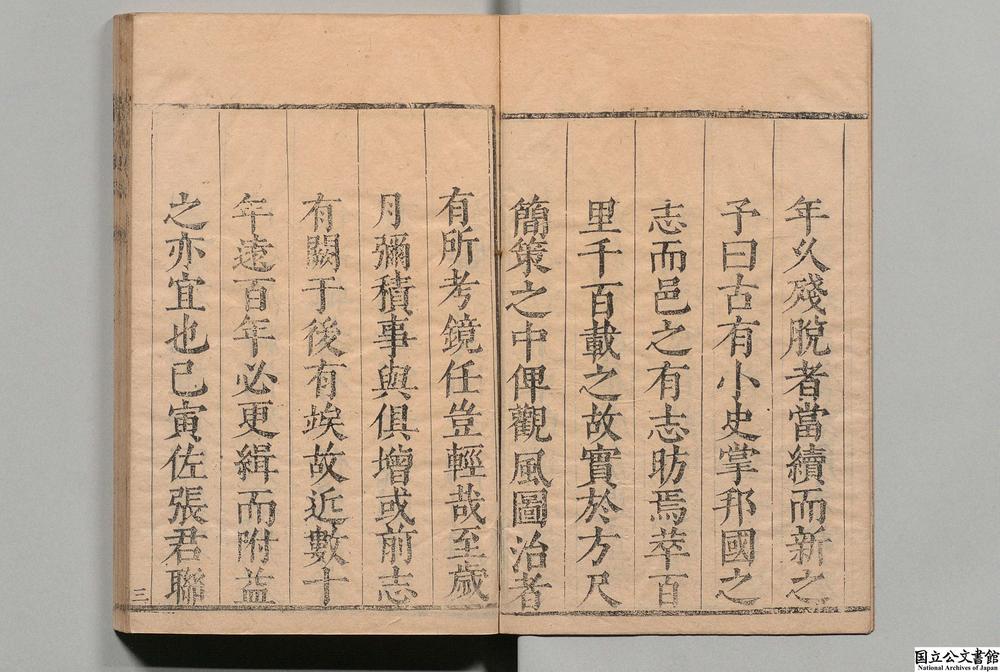 年久殘脫者當續而新之
予曰古有小史掌邦國之
志而邑之有志昉焉萃百
里千百載之故實於方尺
簡策之中俾觀風圖治者
有所考鏡任豈輕哉至歲
月彌積事與俱增或前志
有闕于後有竢故近數十
年遠百年必更緝而附益
之亦宜也已寅佐張君聯
三
国立公文書館
National Archives of Japan